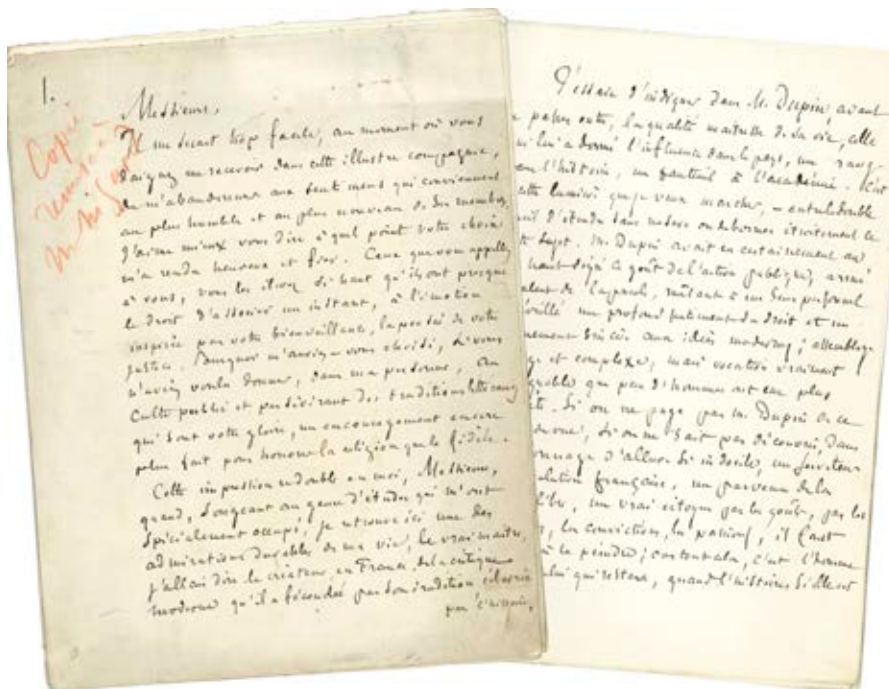 1.
Copie
Messieurs,
Il me serait trop facile, au moment où vous
daignez me recevoir dans cette illustre compagnie,
de m'abandonner aux sentiments qui conviennent
au plus humble et au plus nouveau de ses membres.
J'aime mieux vous dire à quel point votre choix
m'a rendu heureux et fier. Ceux que vous appelez
à vous, vous les élevez si haut qu'ils ont presque
le droit d'associer un instant, à l'émotion
inspirée par votre bienveillance, la pensée de votre
justice. Pourquoi m'auriez-vous choisi, si vous
n'aviez voulu donner, dans ma personne, au
culte public et persévérant des traditions littéraires
qui sont votre gloire, un encouragement encore
plus fait pour honorer la religion que le fidèle.
Cette impression redouble en moi, Messieurs,
quand, songeant au genre d'études qui m'ont
spécialement occupé, je retrouve ici une des
admirations durables de ma vie, le vrai maître,
j'allais dire le créateur, en France, de la critique
moderne qu'il a fécondée par son érudition
par l'histoire,
J'essaie d'indiquer dans M. Dupin, avant
passer outre, la qualité maîtresse de sa vie, celle
qui lui a donné l'influence dans le pays, un rang
dans l'histoire, un fauteuil à l'académie. C'est
cette lumière que je veux marcher,
d'étendue sans mesure ou de borner étroitement le
sujet. M. Dupin avait eu certainement au
haut degré le goût de l'action publique,
talent de la parole, mêlant à un sens profond
un profond sentiment du droit et un
sincère aux idées modernes; assemblage
et complexe, mais vocation vraiment
que peu d'hommes ont eue plus
Si on ne juge pas M. Dupin de ce
si on ne sait pas découvrir, dans
personnage d'allure si indocile, un serviteur
révolution française, un parvenu de la
libre, un vrai citoyen par les goûts, par les
les convictions, les passions, il faut
à le peindre; car tout cela, c'est l'homme
celui qui restera, quand l'histoire, si elle est